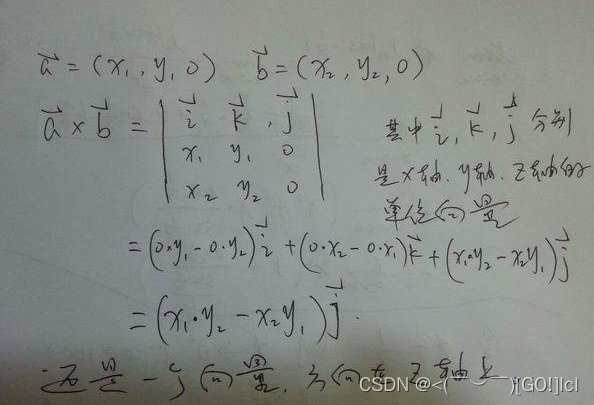 a⃗ = (x₁, y₁, 0) b⃗ = (x₂, y₂, 0)
a⃗ × b⃗ = | i⃗ k⃗, j⃗ |
| x₁ y₁ 0 |
| x₂ y₂ 0 |
其中 i⃗, k⃗, j⃗ 分别
是x轴、y轴、z轴的
单位向量
= (0·y₁ - 0·y₂) i⃗ + (0·x₂ - 0·x₁) k⃗ + (x₁·y₂ - x₂y₁) j⃗
= (x₁·y₂ - x₂y₁) j⃗.
还是一个向量, 方向在z轴上
CSDN @-(¯`⌣´¯)[GO!]lcl